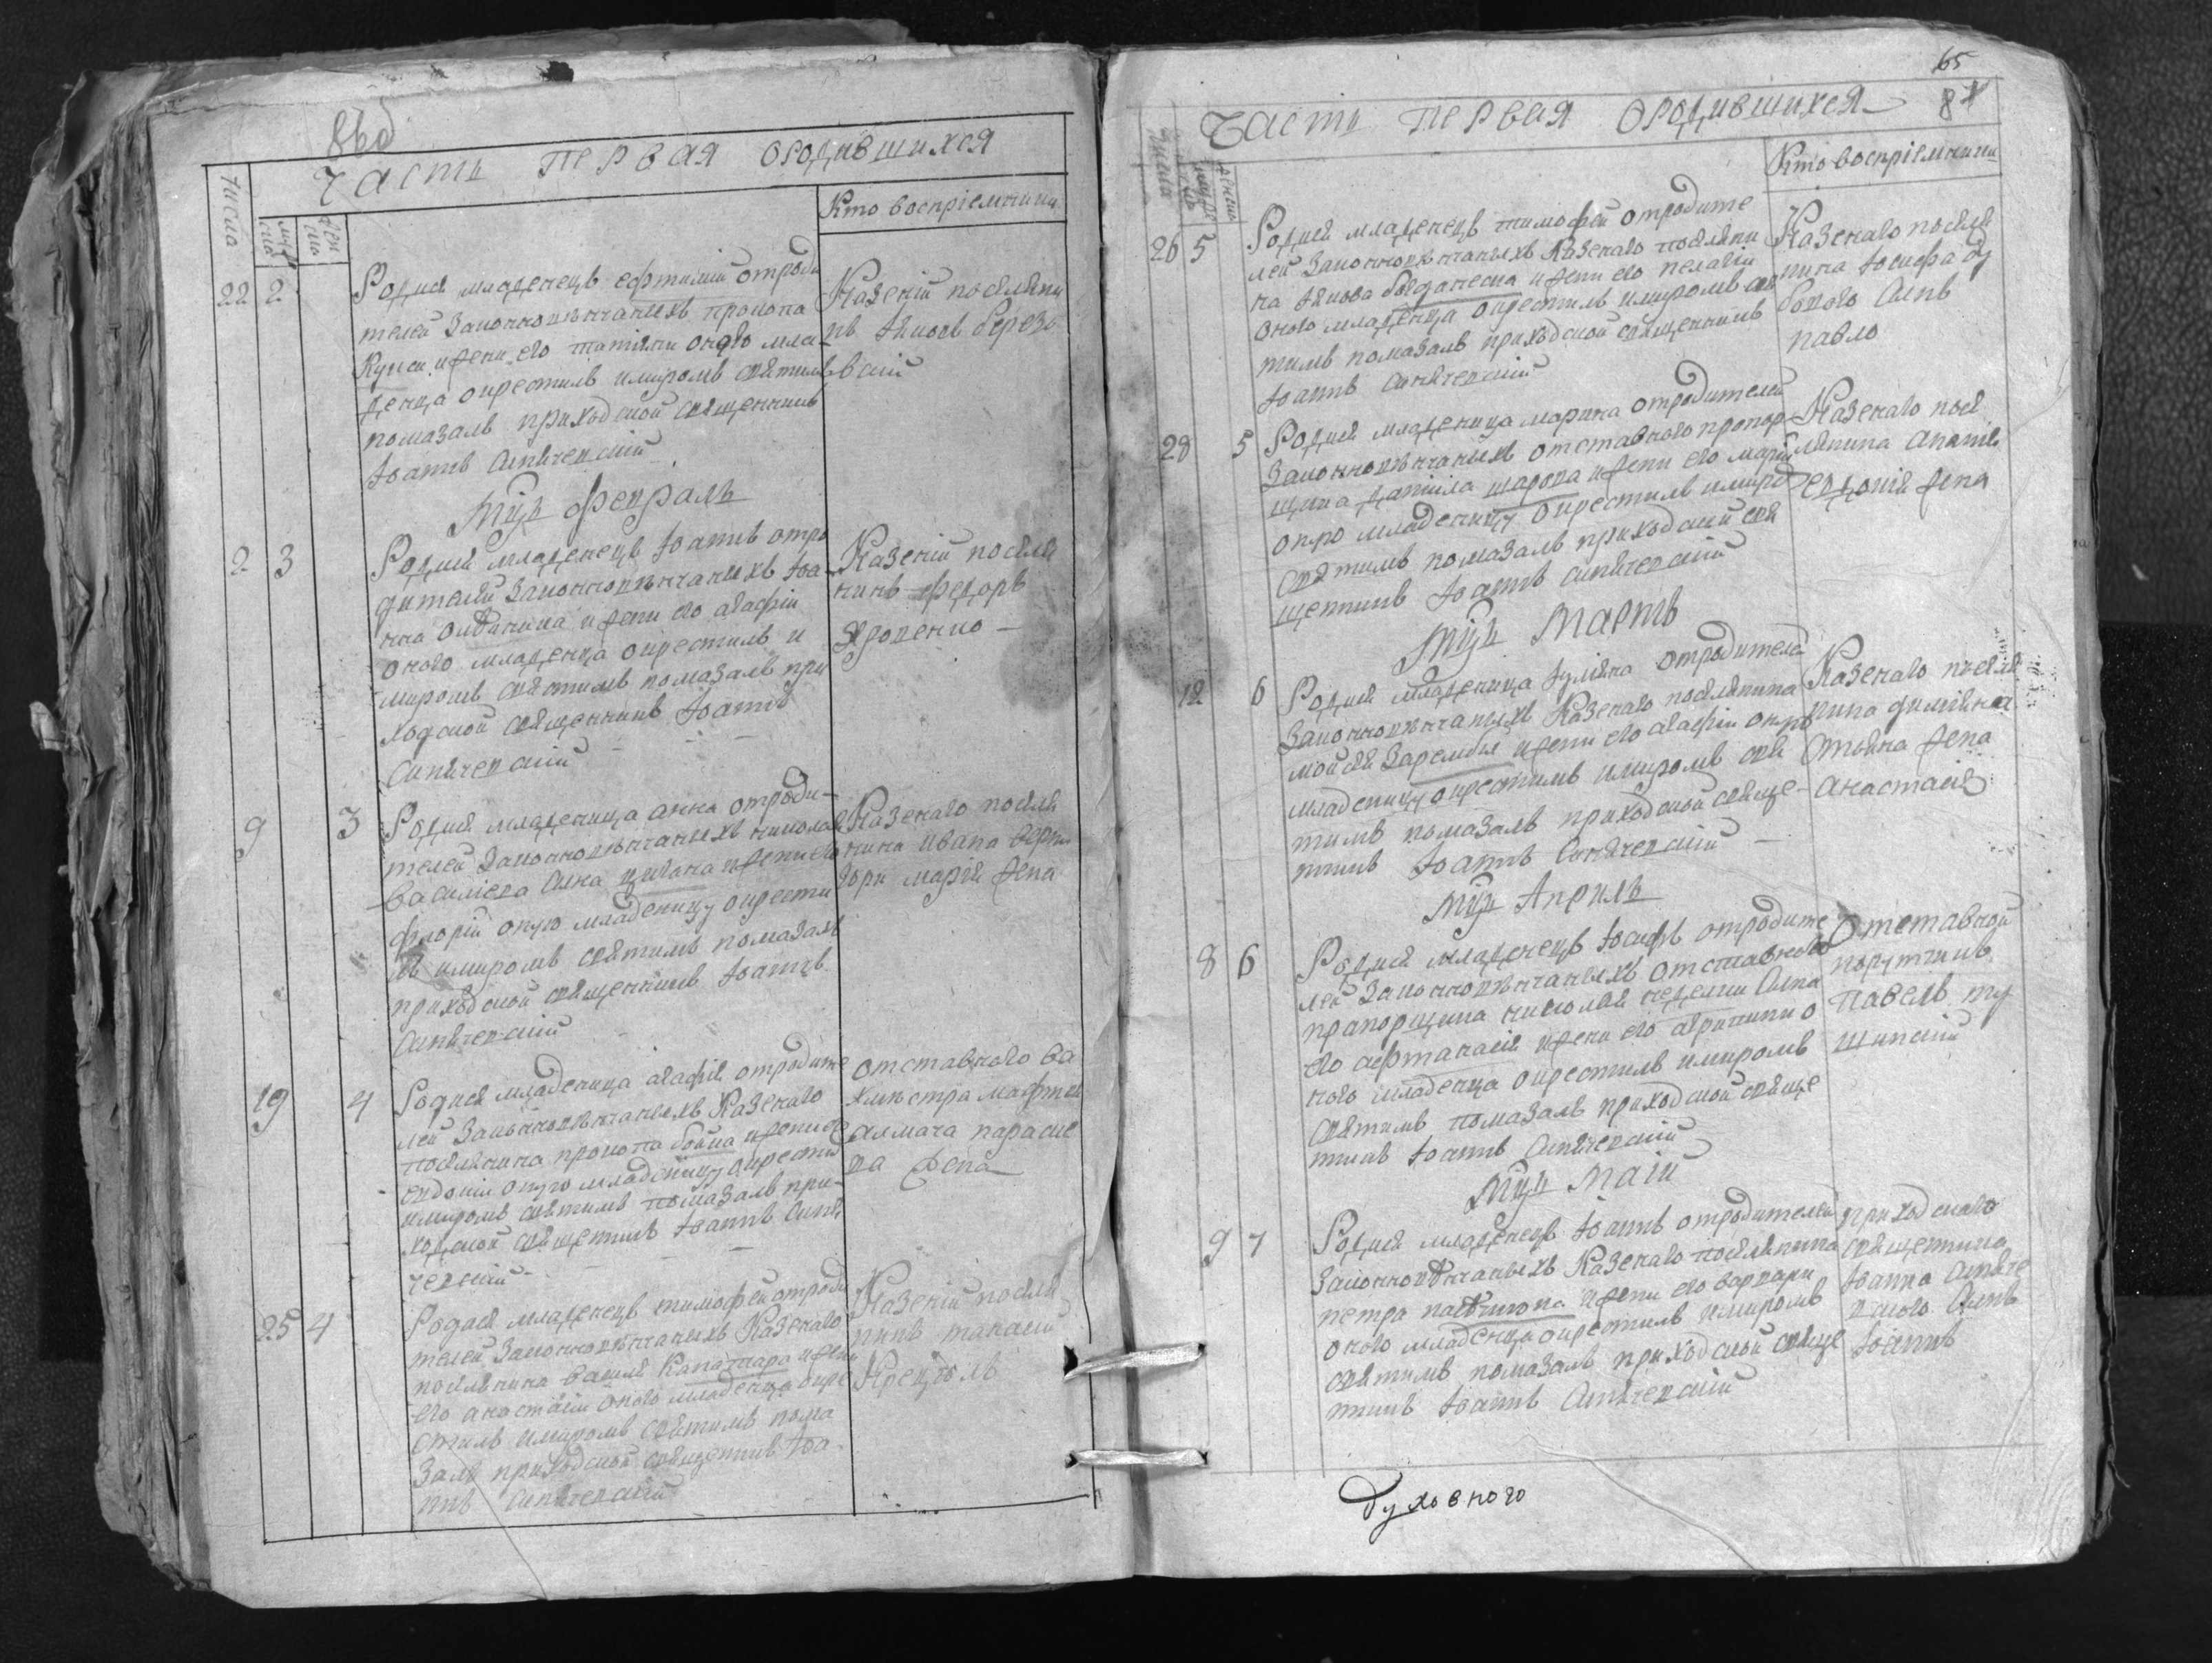 86об
Часть первая ородившихся
Числа
муж
ска
жен
ска
Кто воспріемники
22 2
Родися младенецъ ефтимій отроди
телей законновѣнчаныхъ прокопа
Куцси ижени его татіяни оного мла
денца окрестилъ имиромъ святимъ
помазалъ приходской священникъ
Іоаннъ Синячевскій
Казеній поселяни
нъ Яковъ березо
вскій
Мцъ Февраль
2 3
Родися младенецъ Іоаннъ отро
дителей законновѣнчаныхъ Іоа
нна ижени его агафіи
оного младенца окрестилъ и
миромъ святимъ помазалъ при
ходской священникъ Іоаннъ
Синячевскій
Казеній поселя
нинъ федоръ
9 3
Родися младеница анна отроди-
телей законновѣнчаныхъ николая
василіева сина цигана ижени его
флорій оную младеницу окрести
лъ имиромъ святимъ помазалъ
приходской священникъ Іоаннъ
Синячевскій
Казенаго поселя
нина ивана
марія жена
19 4
Родися младеница агафія отродите
лей законновѣнчаныхъ Казенаго
поселянина прокопа бойна ижени его
евдокіи оную младеницу окрестил
имиромъ святимъ помазалъ при-
ходской священникъ Іоаннъ Синя
чевскій
отставного ва
хмистра мафтея
салмача параске
ва жена
25 4
Родися младенецъ тимофей отроди
телей законновѣнчаныхъ Казенаго
поселянина василя Капатнара ижени
его анастасіи оного младенца окре
стилъ имиромъ святимъ пома
залъ приходской священникъ Іоа
ннъ Синячевскій
Казеній поселя
нинъ танасій
Крецулъ
65
87
Часть первая ородившихся
Числа
Кто воспріемники
26 5
Родися младенецъ тимофей отродите
лей законновѣнчаныхъ Казенаго поселяни
на Якова богданеска ижени его пелагіи
оного младенца окрестилъ имиромъ свя
тимъ помазалъ приходской священникъ
Іоаннъ Синячевскій
Казенаго поселя
нина Іосифа бу
бокого синъ
павло
28 5
Родися младеница марина отродителей
законновѣнчаныхъ отставного прапор
щика даніила шарова ижени его маріи
оную младеницу окрестилъ имиро
святимъ помазалъ приходской свя
щенникъ Іоаннъ синячевскій
Казенаго посе
лянина
евдокія жена
Мцъ Мартъ
12 6
Родися младеница Іуліяна отродителей
законновѣнчаныхъ Казенаго поселянина
мойсея Зарембы ижени его агафіи оную
младеницу окрестилъ имиромъ свя
тимъ помазалъ приходской свяще-
нникъ Іоаннъ Синячевскій
Казенаго поселя
нина диміяна
стояна жена
анастасія
Мцъ Априль
8 6
Родися младенецъ Іосифъ отродите
лей законновѣнчаныхъ отставного
прапорщика николая неделки сина
его афтанасія ижени его агрипини о
ного младенца окрестилъ имиромъ
святимъ помазалъ приходской свяще
нникъ Іоаннъ Синячевскій
Отставной
порутчикъ
павелъ ту
шинскій
Мцъ Маій
9 7
Родися младенецъ Іоаннъ отродителей
законновѣнчаныхъ Казенаго поселянина
петра ижени его варвари
оного младенца окрестилъ имиромъ
святимъ помазалъ приходской свяще
нникъ Іоаннъ Синячевскій
приходского
священника
Іоанна Синяче
вского синъ
Іоаннъ
Духовного